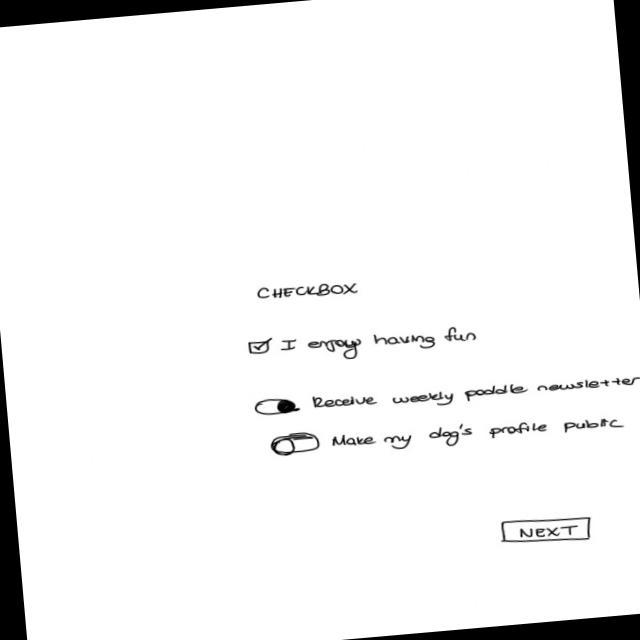 CHECKBOX
I enjoy having fun
Receive weekly poddle newsletter
Make my dog's profile public
NEXT